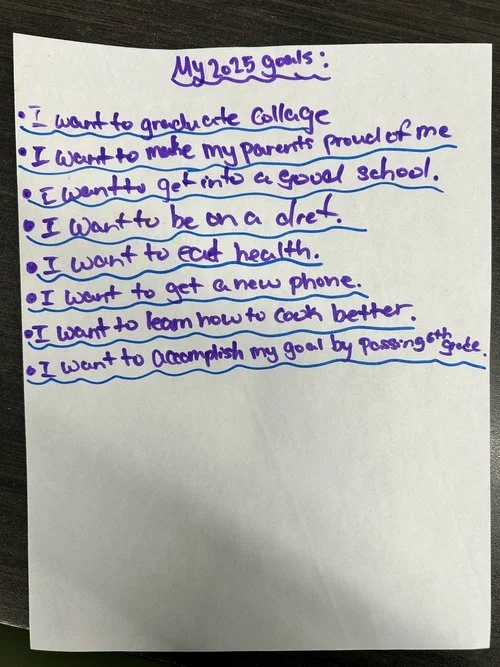 My 2025 goals:
• I want to graduate collage
• I want to make my parents proud of me
• I want to get into a good school.
• I want to be on a diet.
• I want to eat health.
• I want to get a new phone.
• I want to learn how to cook better.
• I want to accomplish my goal by passing 6th grade.